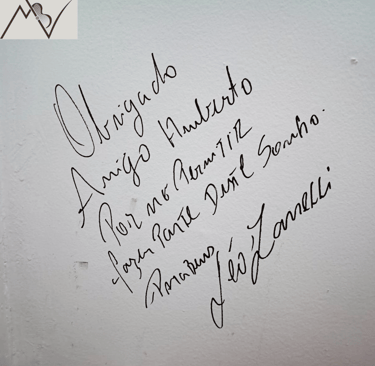 MBV
Obrigado
Amigo Humberto
Por me Permitir
fazer Parte Deste Sonho.
Parabens
Léo Zanelli